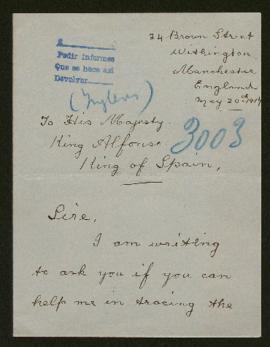 24 Brown Street
Withington
Manchester
England
May 20th
A
Pedir informes
Que se hace así
Devolver
(Ingles)
To His Majesty
King Alfonso
King of Spain,
3003
Sire,
I am writing
to ask you if you can
help me in tracing the